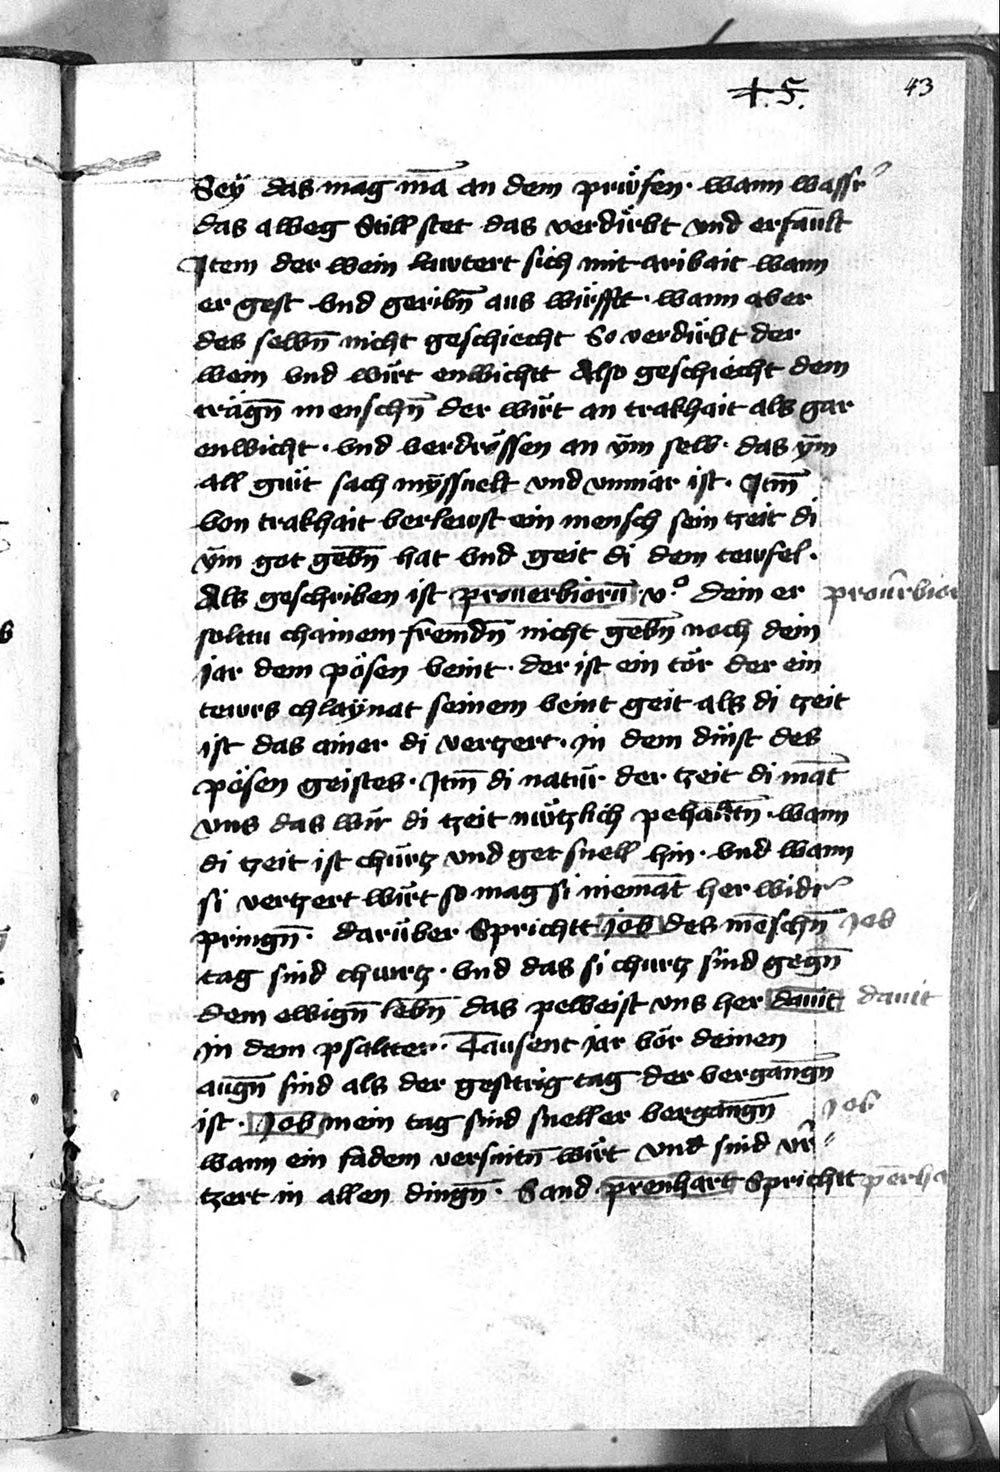 43
Seÿ das mag mā an dem prüöfen · wann wassr
das alweg Still stet das verdirbt vnd erfawlt
Item der wein lawtert sich mit aribait wann
er gest vnd geribn̄ aus würfft · wann aber
des selbn̄ nicht geschiecht So verdirbt der
wein vnd würt enwicht Also geschiecht dem
trägn̄ menschn̄ der würt an trakhait als gar
enwicht · vnd verdrossen an ÿm selb · das ÿm
all güt sach mÿssuelt vnd vnmär ist · Itm̄
von trakhait verlewst ein mensch sein tzeit di
ÿm got gebn̄ hat vnd geit di dem tewfel ·
Als geschriben ist prouerbiorū v° dein er
soltu chainem fremdn̄ nicht gebn̄ noch dein
jar dem pösen veint · der ist ein tör der ein
tewrs chlaÿnat seinem veint geit als di tzeit
ist das ainer di vertzert · in dem dinst des
pösen geistes · Itm̄ di natür der tzeit di māt
vns das wir di tzeit nützlich pehaltn̄ · wann
di tzeit ist chürtz vnd get snell hin · vnd wann
si vertzert würt so mag si niemāt her widr
pringn̄ · darüber Spricht Job des mēschn̄
tag sind churtz · vnd das si churtz sind gegn̄
dem ewign̄ lebn̄ das peweist vns her dauit
in dem psalter · Tausent jar vör deinen
augn̄ sind als der gestrig tag der vergangn̄
ist · Job mein tag sind sneller vergangn̄
wann ein fadem versnitn̄ würt vnd sind vr̄
tzert in allen dingn̄ · Sand prenhart Spricht
prouerbior
Job
dauit
Job